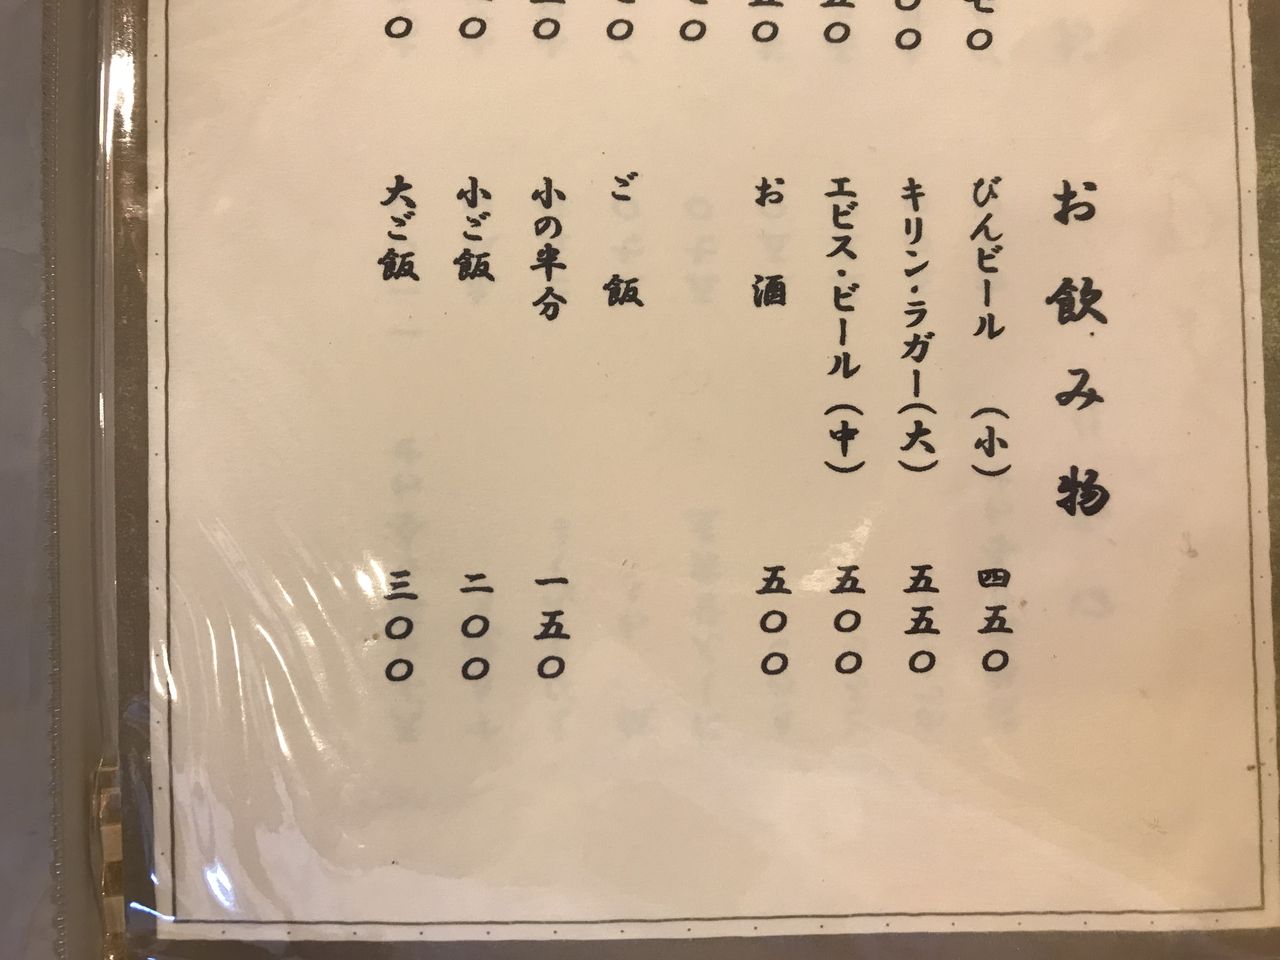 お飲み物
びんビール（小）　四五〇
キリン・ラガー（大）　五五〇
エビス・ビール（中）　五〇〇
お酒　五〇〇
ご飯
小の半分　一五〇
小ご飯　二〇〇
大ご飯　三〇〇